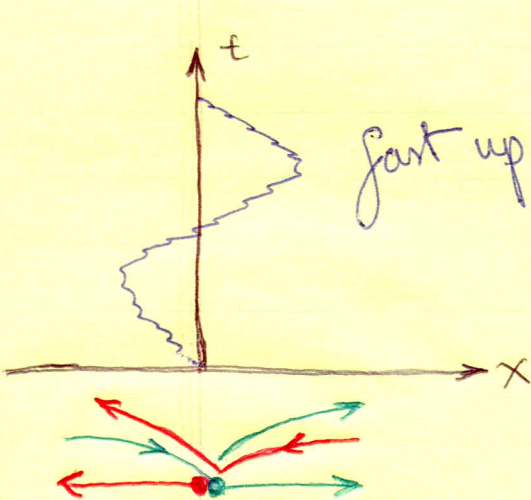 t
fast up
x